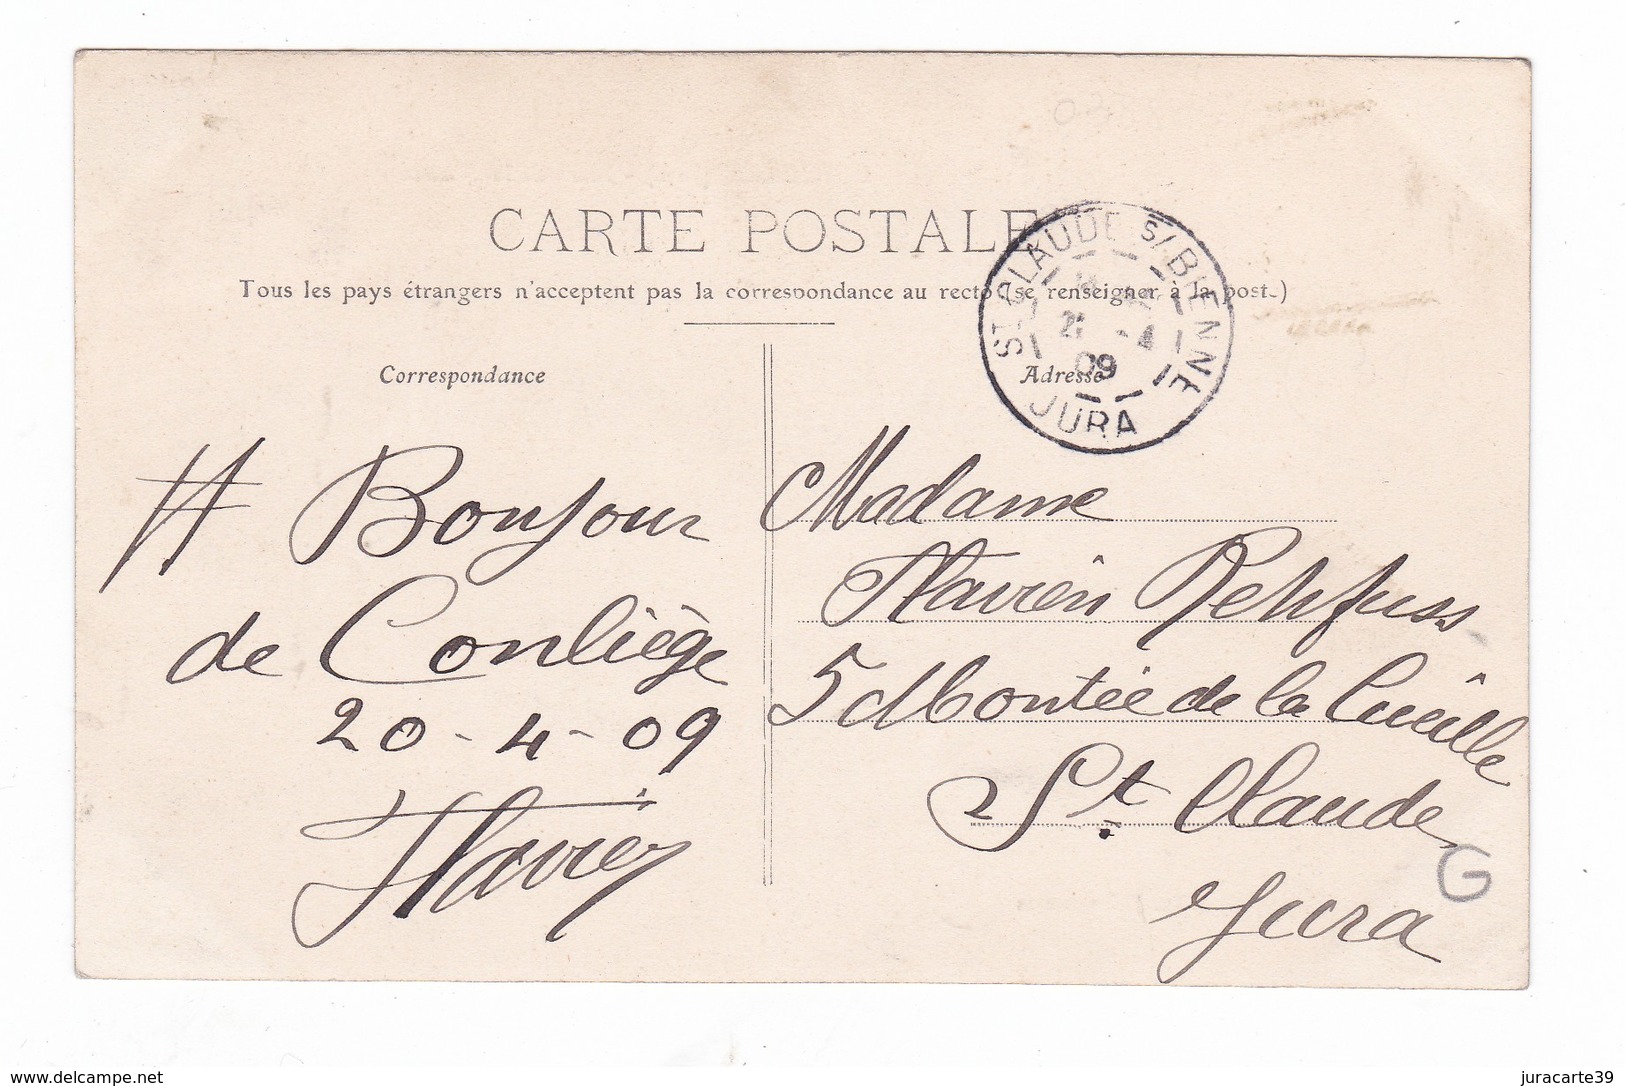 CARTE POSTALE
Tous les pays étrangers n'acceptent pas la correspondance au recto (se renseigner à la poste.)
ST CLAUDE S/ BIENNE
09
JURA
Correspondance
Adresse
Bonjour
de Conliège
20-4-09
Flavien
Madame
Flavien Rehfuss
5 Montée de la Cueille
St. Claude
Jura
G
www.delcampe.net
juracarte39